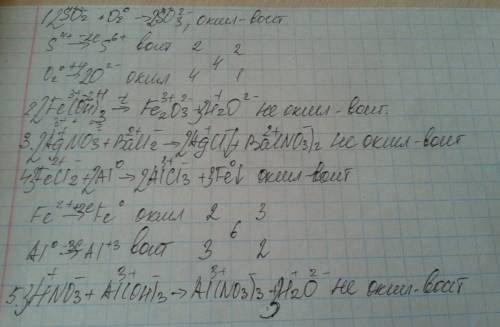 1. 2SO₂ + O₂⁰ → 2SO₃²⁻, окисл-восст
S⁴⁺ -2e→ S⁶⁺ восст 2 2
4
O₂⁰ +4→ 2O²⁻ окисл 4 1
2. 2Fe(OH)₃ t→ Fe₂O₃ + 3H₂O²⁻ не окисл-восст.
3. 2AgNO₃ + BaCl₂ → 2AgCl↓ + Ba(NO₃)₂ не окисл-восст
4. 3FeCl₂ + 2Al⁰ → 2AlCl₃ + 3Fe⁰↓ окисл-восст
Fe²⁺ +2e→ Fe⁰ окисл 2 3
6
Al⁰ -3e→ Al⁺³ восст 3 2
5. 3HNO₃ + Al(OH)₃ → Al(NO₃)₃ + 3H₂O²⁻ не окисл-восст